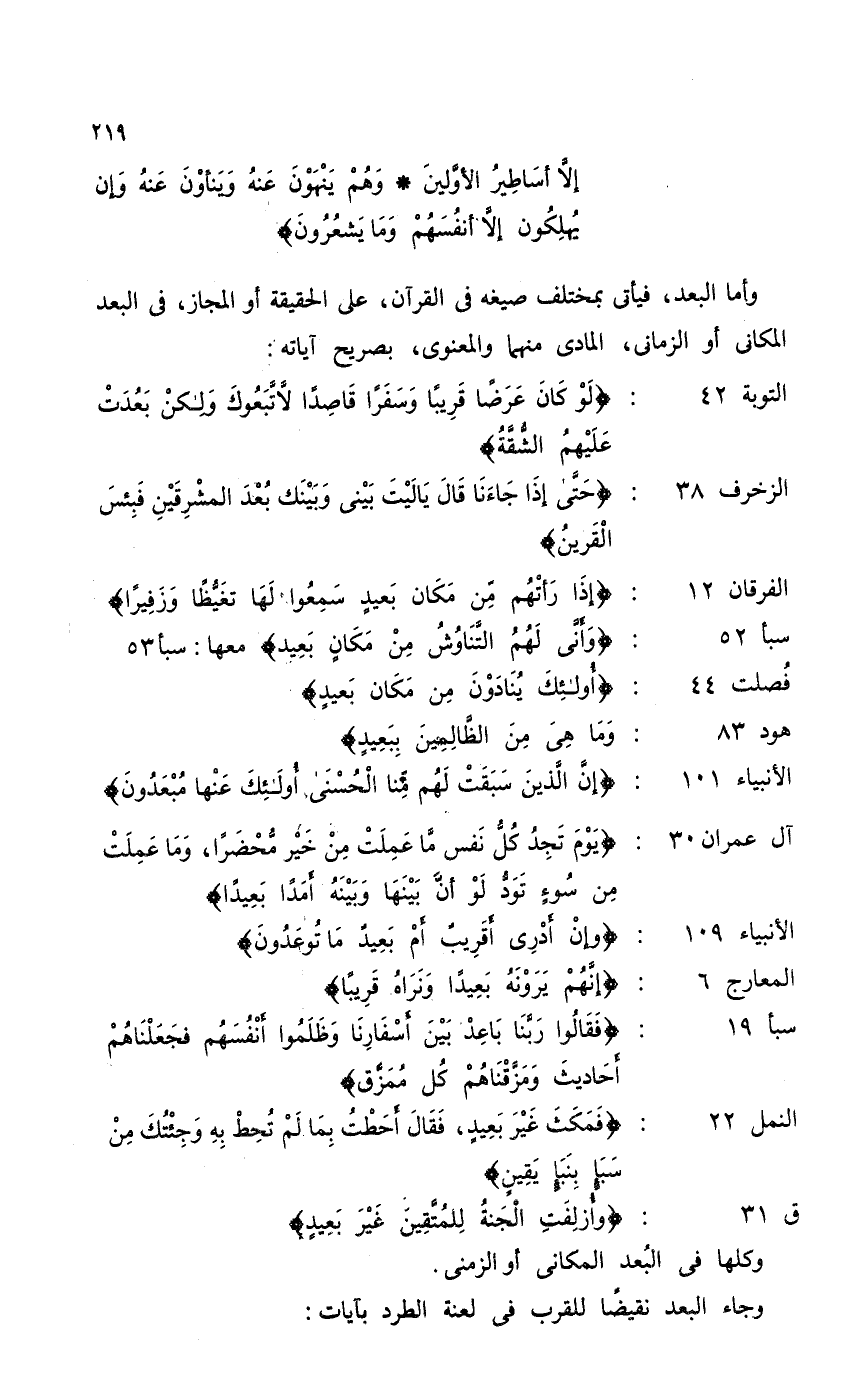 ٢١٩
إلَّا أسَاطِيرُ الأوَّلينَ * وَهُمْ يَنْهَوْنَ عَنهُ وَيَنأوْنَ عَنهُ وَإن
يُهلِكُون إلَّا أنفُسَهُمْ وَمَا يَشعُرُونَ﴾
وأما البعد، فيأتى بمختلف صيغه فى القرآن، على الحقيقة أو المجاز، فى البعد
المكانى أو الزمانى، المادى منهما والمعنوى، بصريح آياته :
التوبة ٤٢ : ﴿لَوْ كَانَ عَرَضًا قَرِيبًا وَسَفَرًا قَاصِدًا لاَّتَّبَعُوكَ وَلٰكنْ بَعُدَتْ
عَلَيْهمُ الشُّقَّةُ﴾
الزخرف ٣٨ : ﴿حَتَّىٰ إذَا جَاءَنَا قَالَ يَالَيْتَ بَيْنى وَبَيْنَك بُعْدَ المشْرِقَيْنِ فَبِئسَ
الْقَرينُ﴾
الفرقان ١٢ : ﴿إذَا رَأتْهُم مِّن مَكَان بَعيدٍ سَمِعُوا لَهَا تغَيُّظًا وَزَفِيرًا﴾
سبأ ٥٢ : ﴿وَأَنَّى لَهُمُ التَّنَاوُشُ مِنْ مَكَانٍ بَعِيد﴾ معها : سبأ ٥٣
فُصلت ٤٤ : ﴿أُولٰئِكَ يُنَادَوْنَ مِن مَكَان بَعيدٍ﴾
هود ٨٣ : وَمَا هِىَ مِنَ الظَّالِمِينَ بِبَعِيدٍ﴾
الأنبياء ١٠١ : ﴿إنَّ الَّذينَ سَبَقَتْ لَهُم مِّنا الْحُسْنَىٰ أُولَئِكَ عَنْها مُبْعَدُونَ﴾
آل عمران ٣٠ : ﴿يَوْمَ تَجِدُ كُلُّ نَفس مَّا عَمِلَتْ مِنْ خَيْر مُّحْضَرًا، وَمَا عَمِلَتْ
مِن سُوءٍ تَوَدُّ لَوْ أنَّ بَيْنَهَا وَبَيْنَهُ أمَدًا بَعِيدًا﴾
الأنبياء ١٠٩ : ﴿وإنْ أَدْرِى أَقَرِيبٌ أَمْ بَعِيدٌ مَا تُوعَدُونَ﴾
المعارج ٦ : ﴿إنَّهُمْ يَرَوْنَهُ بَعِيدًا وَنَرَاهُ قَرِيبًا﴾
سبأ ١٩ : ﴿فَقَالُوا رَبَّنَا بَاعِدْ بَيْنَ أَسْفَارِنَا وَظَلَمُوا أَنْفُسَهُم فجَعَلْنَاهُمْ
أَحَاديثَ وَمَزَّقْنَاهُمْ كُل مُمَزَّق﴾
النمل ٢٢ : ﴿فَمَكَثَ غَيْرَ بَعِيدٍ، فَقَالَ أَحَطْتُ بِمَا لَمْ تُحِطْ بِهِ وَجِئْتُكَ مِنْ
سَبَإٍ بِنَبَإٍ يَقِينٍ﴾
ق ٣١ : ﴿وأُزلِفَتِ الْجَنةُ لِلمُتَّقِينَ غَيْرَ بَعِيدٍ﴾
وكلها فى البُعد المكانى أو الزمنى.
وجاء البعد نقيضًا للقرب فى لعنة الطرد بآيات :